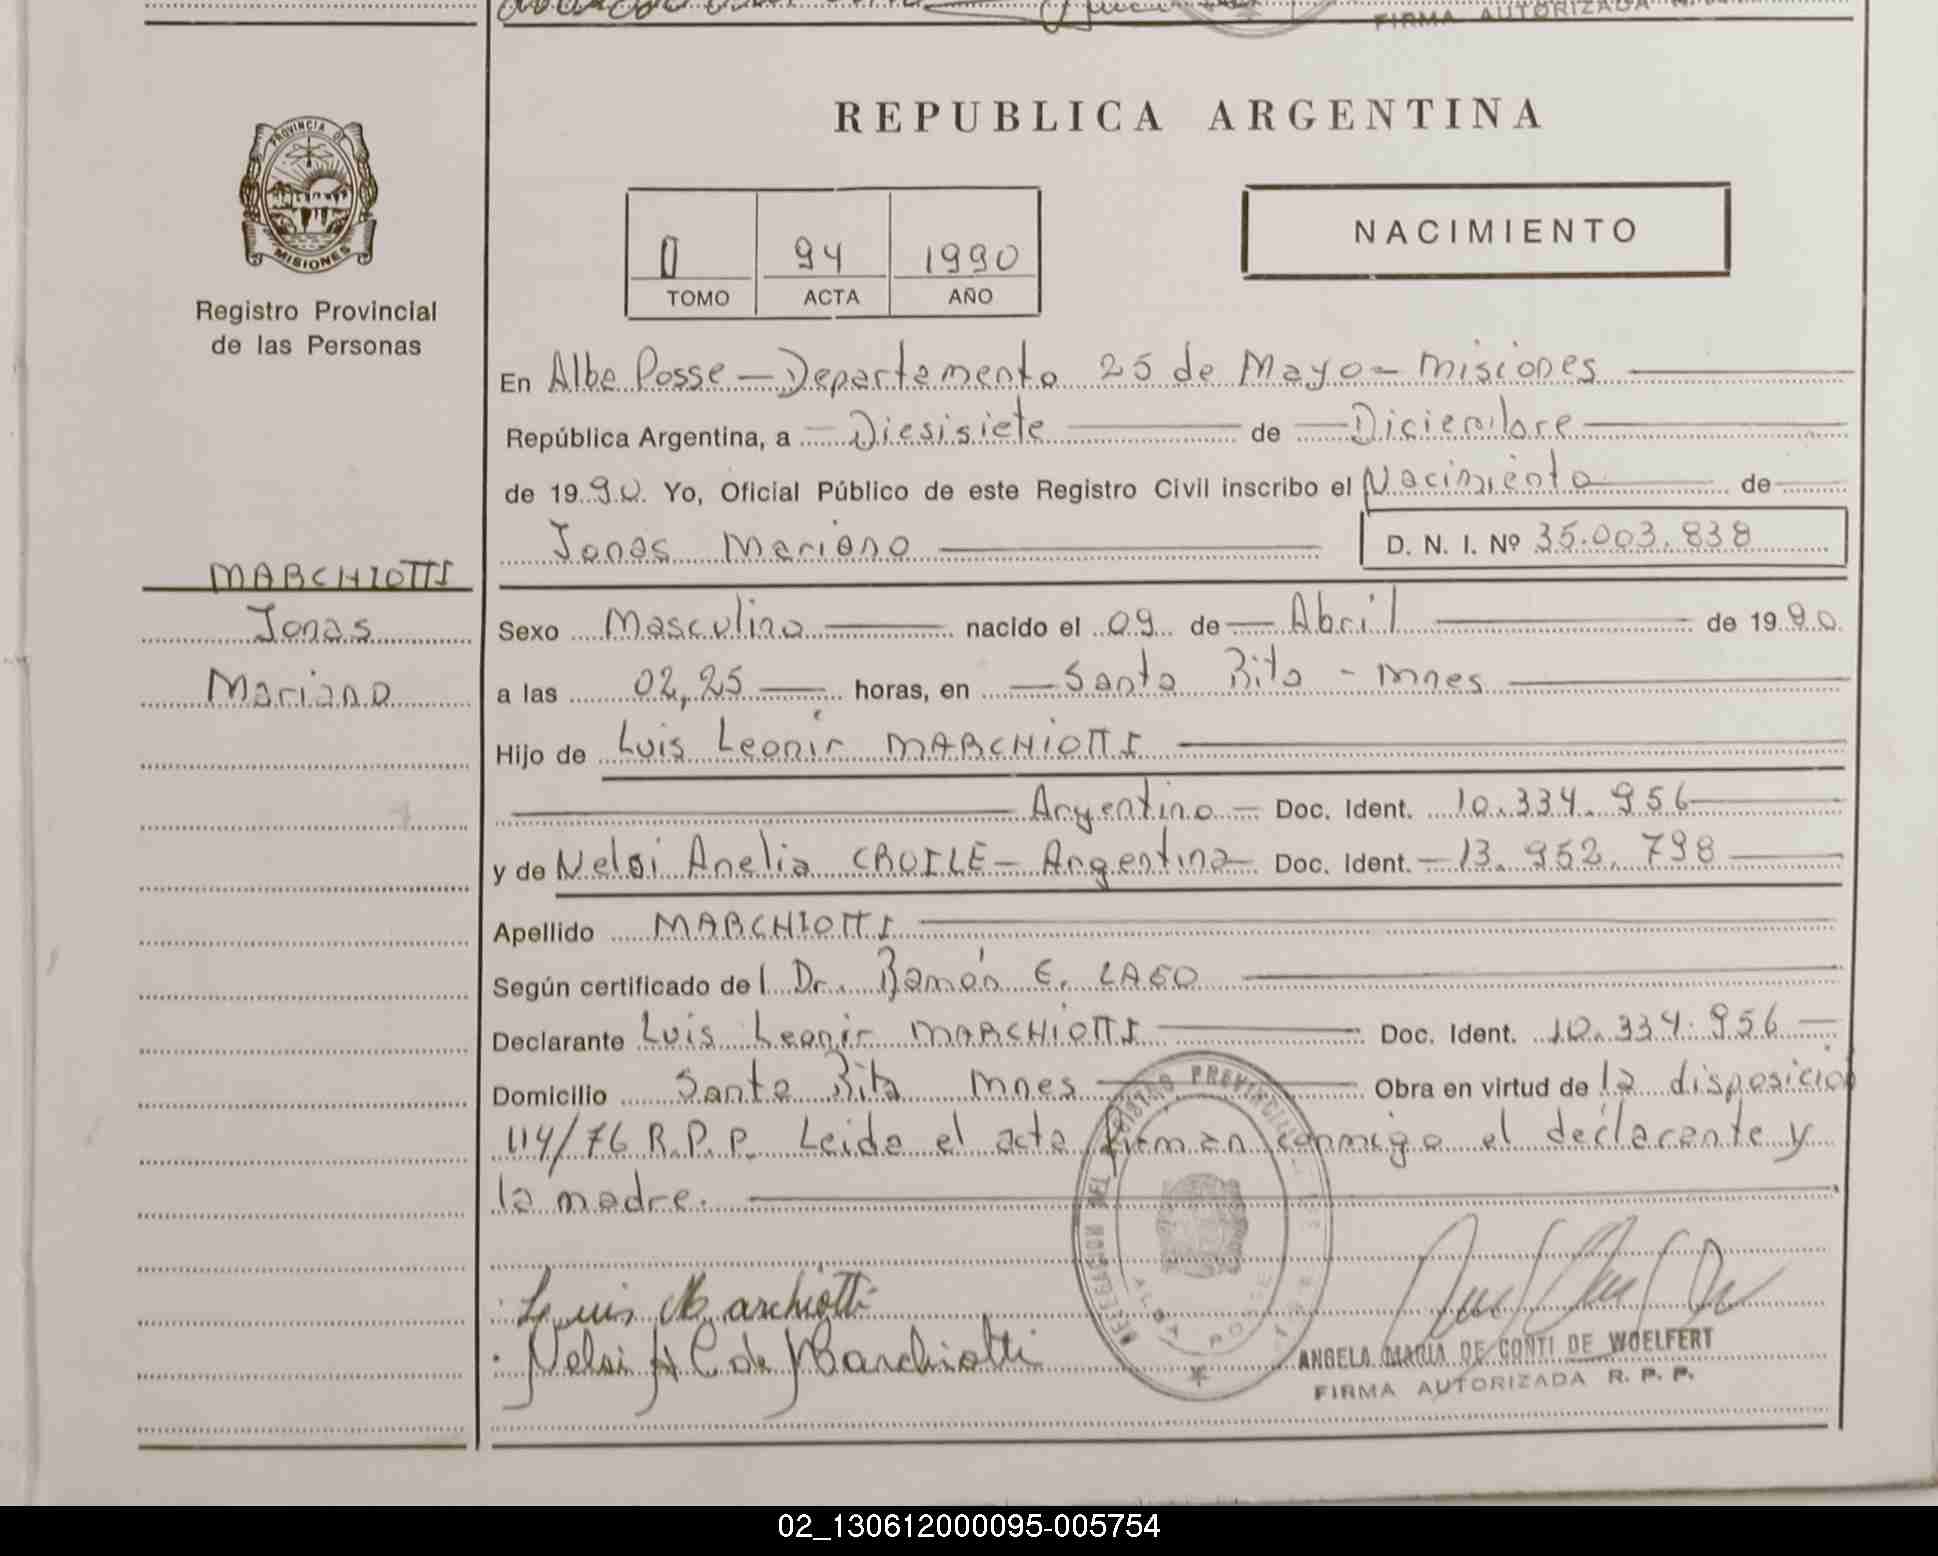 FIRMA AUTORIZADA
PROVINCIA DE
MISIONES
Registro Provincial
de las Personas
REPUBLICA ARGENTINA
NACIMIENTO
94 1990
TOMO ACTA AÑO
En Alba Posse — Departamento 25 de Mayo - Misiones
República Argentina, a Diesisiete de Diciembre
de 1990. Yo, Oficial Público de este Registro Civil inscribo el Nacimiento de
Jonas Mariano D. N. I. Nº 35.003.838
MARCHIOTTI
Jonas
Mariano
Sexo Masculino nacido el 09 de Abril de 1990
a las 02,25 horas, en Santa Rita - Mnes
Hijo de Luis Leonir MARCHIOTTI
Argentino — Doc. Ident. 10.334.956
y de Nelsi Anelia CROILE — Argentina Doc. Ident. 13.952.798
Apellido MARCHIOTTI
Según certificado del Dr. Ramón E. LAGO
Declarante Luis Leonir MARCHIOTTI Doc. Ident. 10.334.956
Domicilio Santa Rita Mnes Obra en virtud de la disposición
114/76 R.P.P. Leida el acta firman conmigo el declarante y
la madre.
Luis Marchiotti
Nelsi A C de Marchiotti
DELEGACION DEL REGISTRO PROVINCIAL
ALBA POSSE
ANGELA MARIA DE CONTI DE WOELFERT
FIRMA AUTORIZADA R. P. P.
02_130612000095-005754